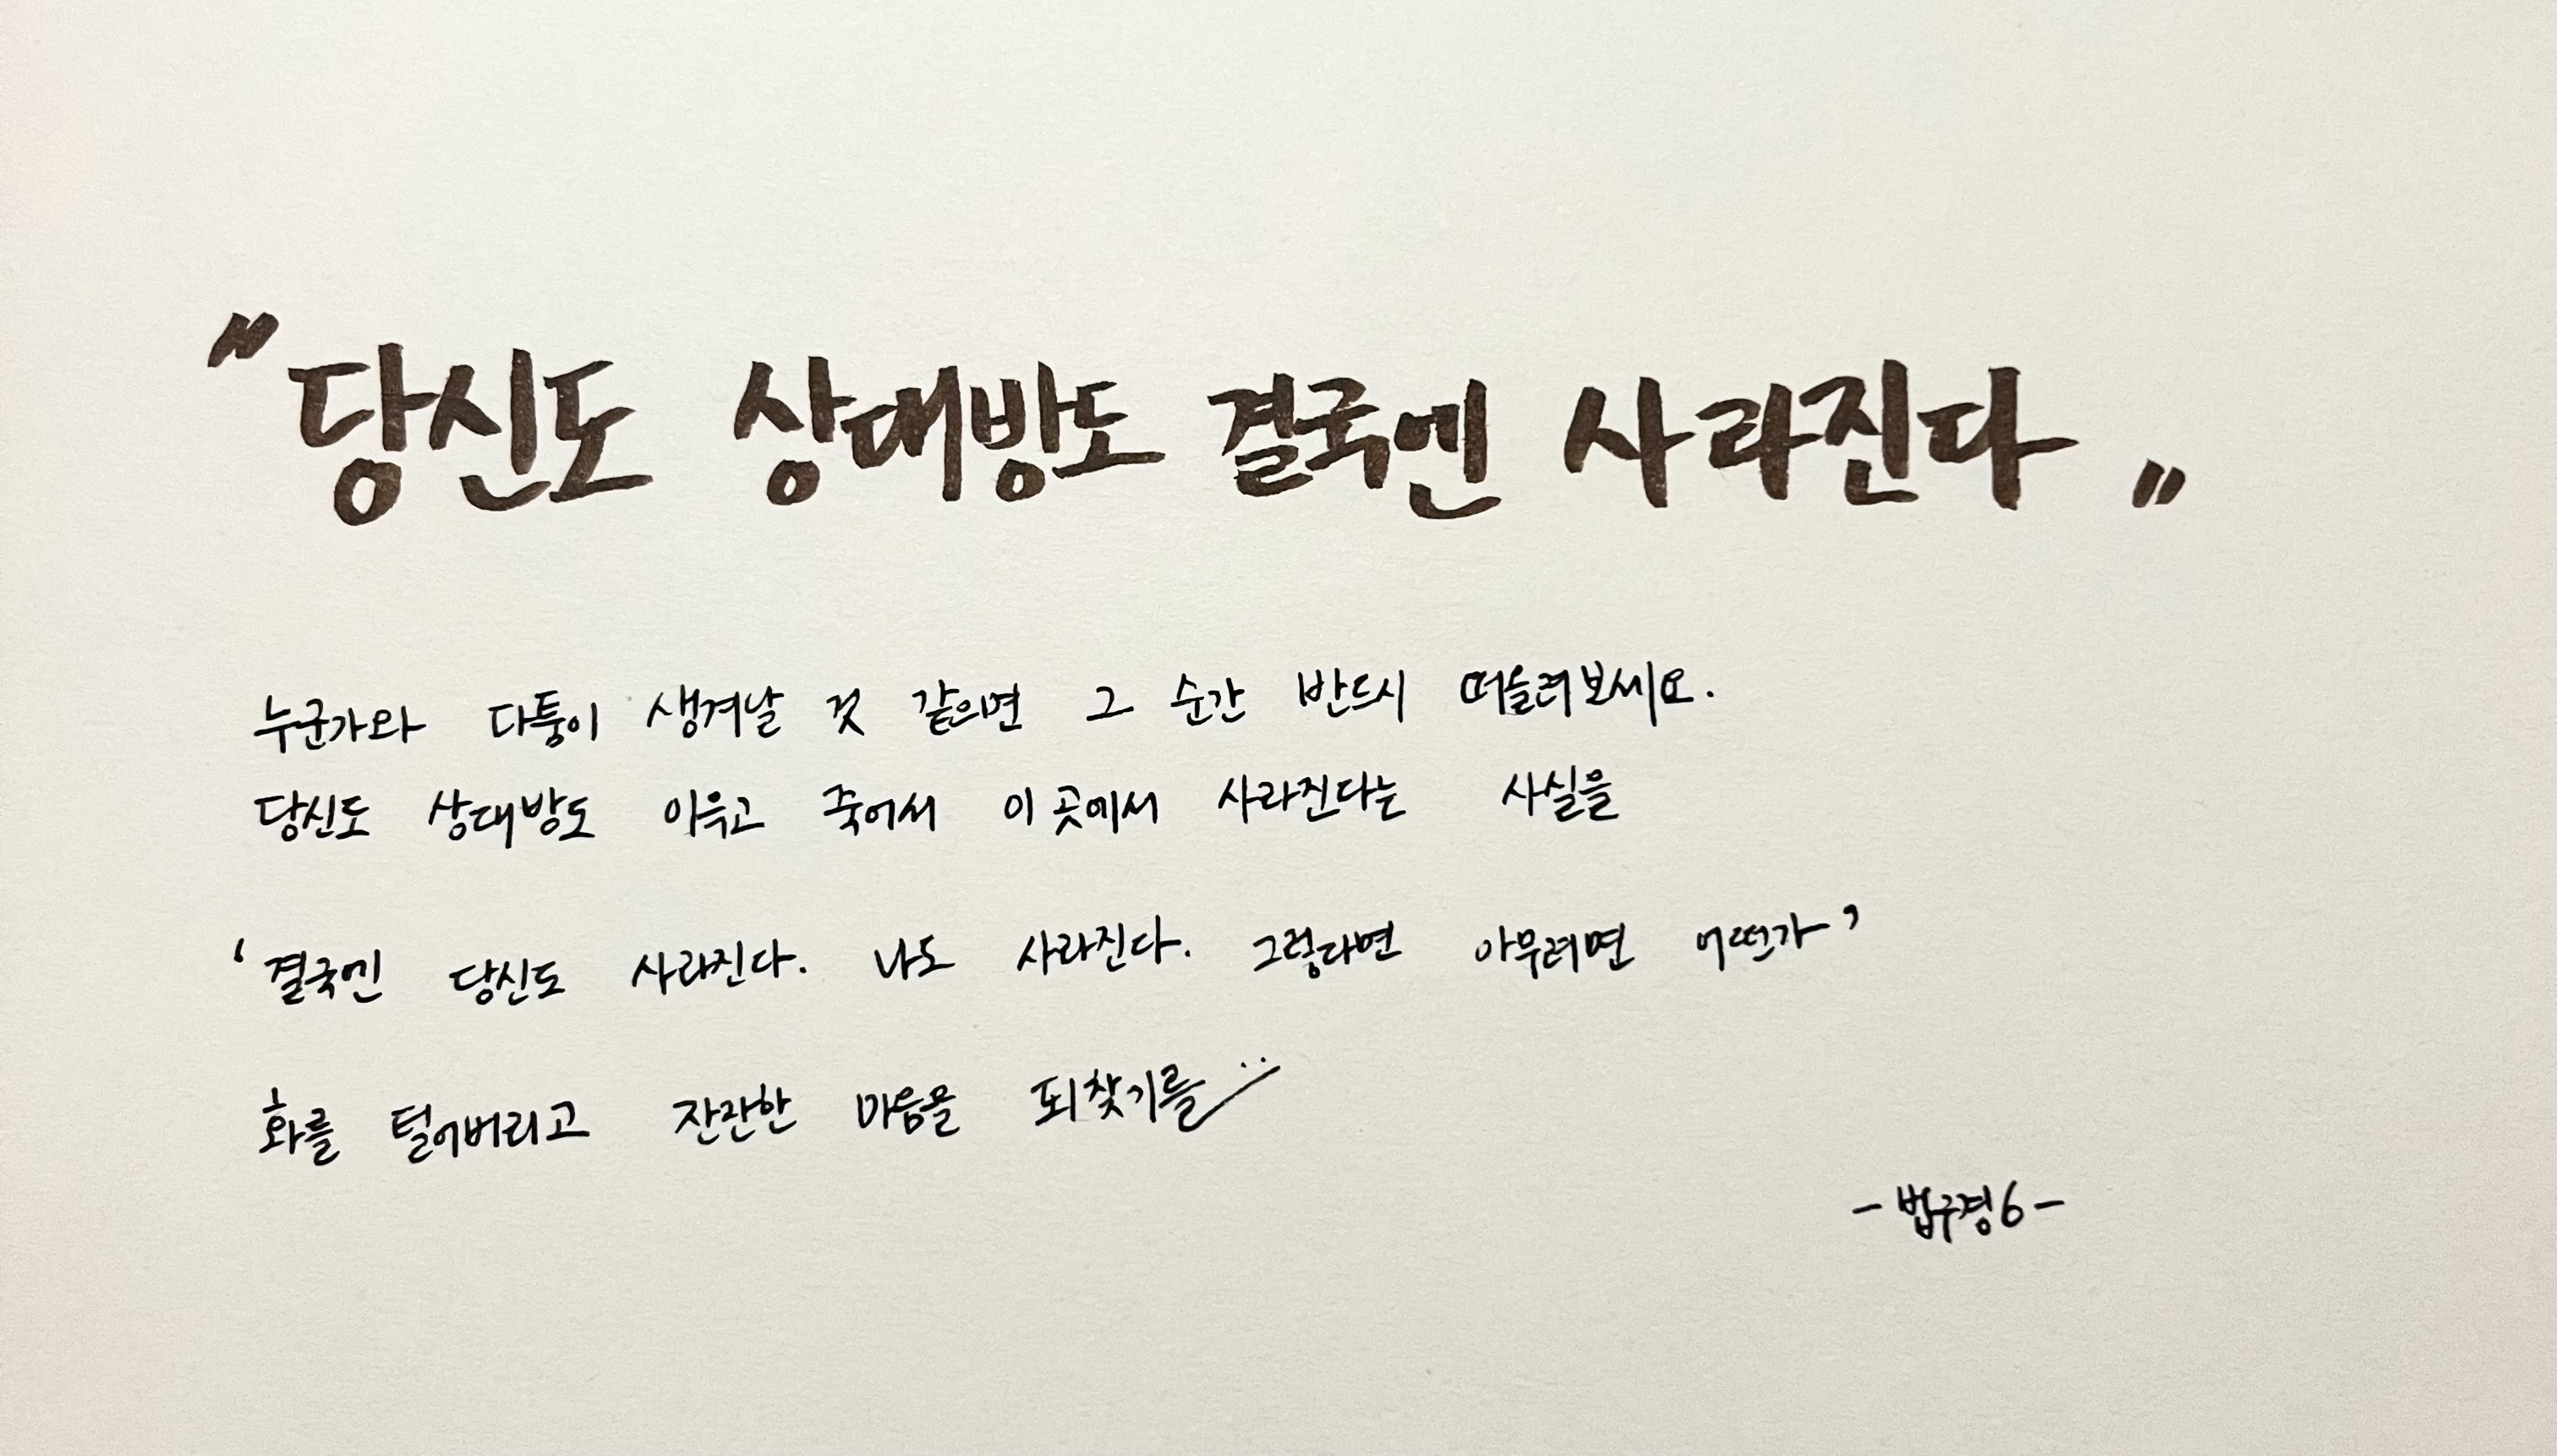 "당신도 상대방도 결국엔 사라진다"
누군가와 다툼이 생겨날 것 같으면 그 순간 반드시 떠올려보세요.
당신도 상대방도 이윽고 죽어서 이 곳에서 사라진다는 사실을
'결국엔 당신도 사라진다. 나도 사라진다. 그렇다면 아무려면 어떤가'
화를 털어버리고 잔잔한 마음을 되찾기를
- 법구경6 -